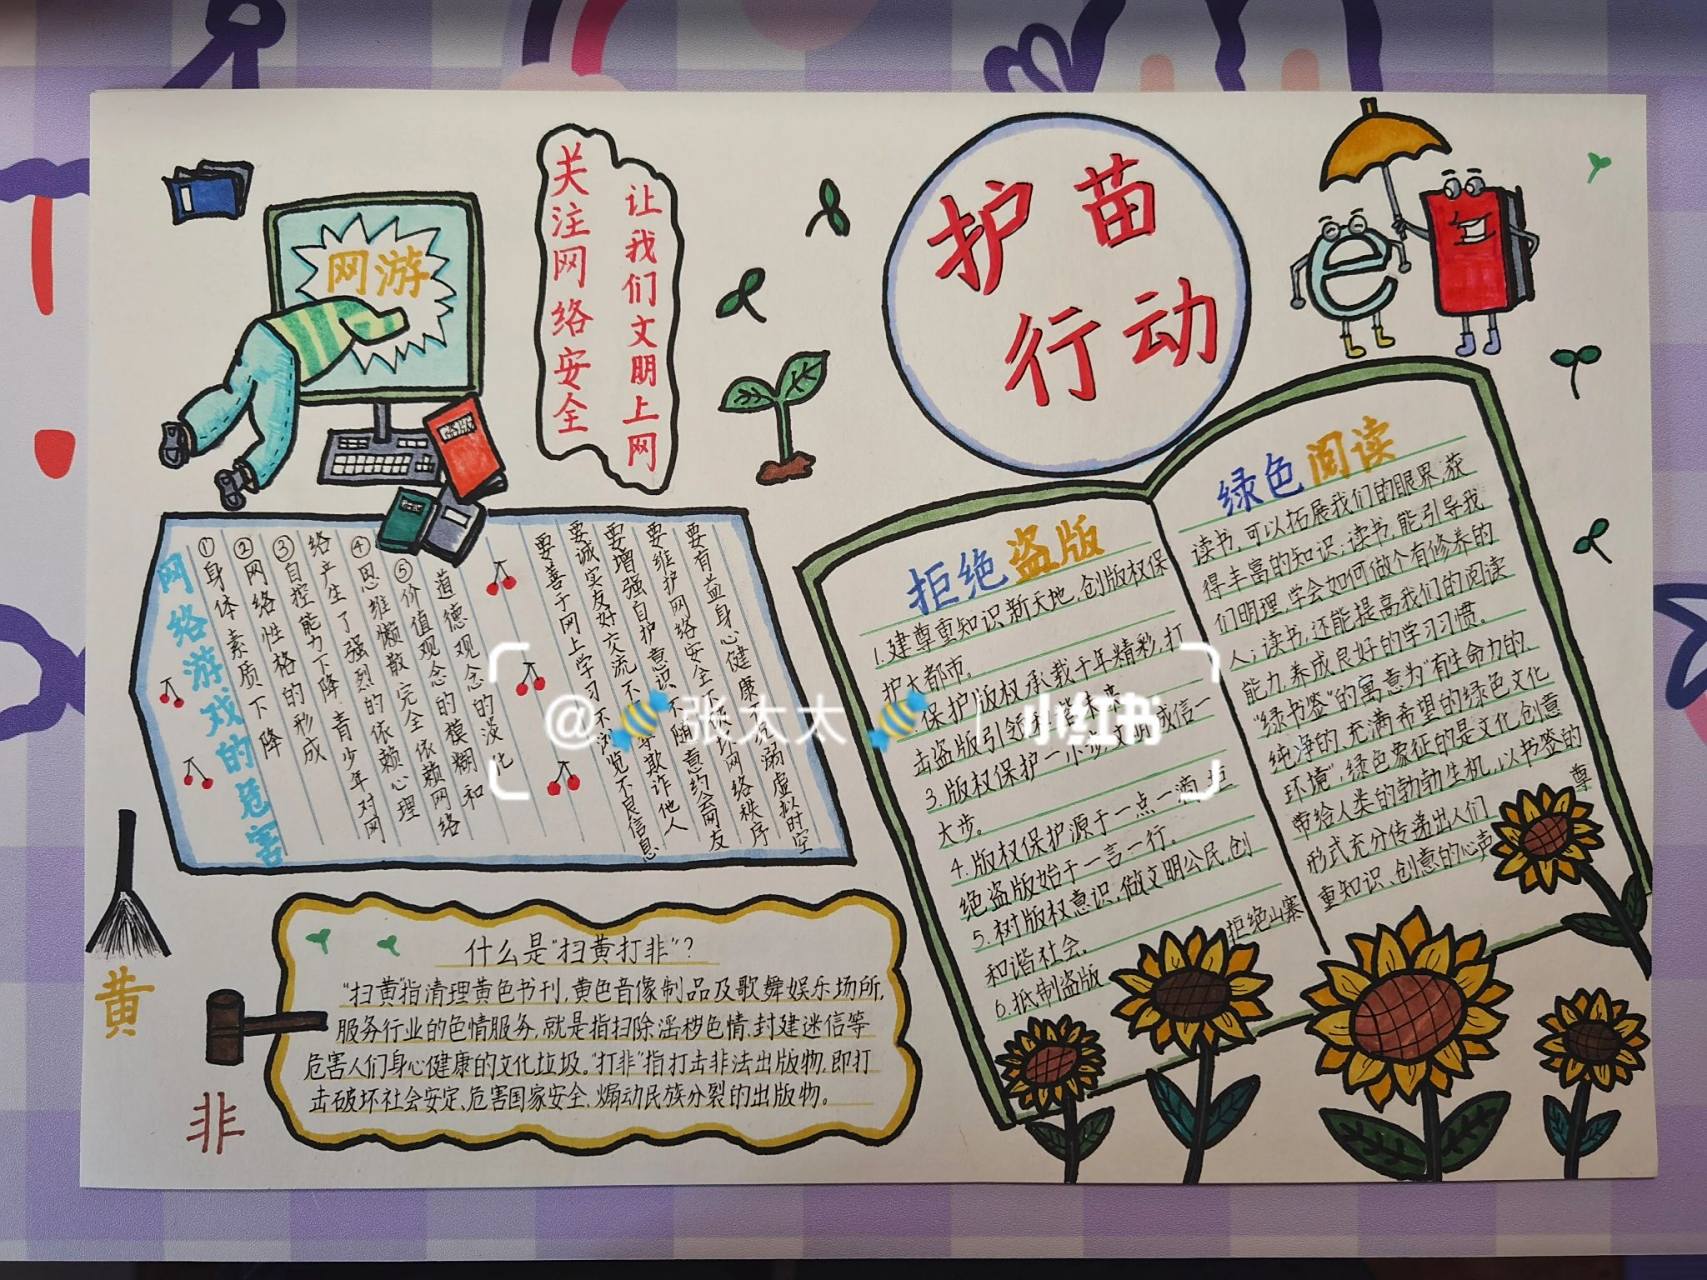 护苗
行动
关注网络安全
让我们文明上网
网游
网络游戏的危害
①身体素质下降
②网络性格的形成
③自控能力下降,青少年对网
络产生了强烈的依赖心理
④思维懒散完全依赖网络
⑤价值观念的模糊和
道德观念的淡化
要善于网上学习 不浏览不良信息
要诚实友好交流 不 欺诈他人
要增强自护意识 不随意约会网友
要维护网络安全 不 坏网络秩序
要有益身心健康 不 溺虚拟时空
拒绝盗版
1.建尊重知识新天地,创版权保
护大都市。
保护版权承载千年精彩,打
击盗版引领
3.版权保护一小步 文明诚信一
大步。
4.版权保护源于一点一滴,拒
绝盗版始于一言一行。
5.树版权意识,做文明公民,创
和谐社会.
6.抵制盗版 拒绝山寨
绿色阅读
读书,可以拓展我们的眼界,获
得丰富的知识;读书,能引导我
们明理,学会如何做个有修养的
人;读书,还能提高我们的阅读
能力,养成良好的学习习惯。
“绿书签”的寓意为“有生命力的、
纯净的、充满希望的绿色文化
环境”,绿色象征的是文化、创意
带给人类的勃勃生机,以书签的
形式充分传递出人们 尊
重知识、创意的心声
黄
非
什么是“扫黄打非”?
“扫黄”指清理黄色书刊,黄色音像制品及歌舞娱乐场所,
服务行业的色情服务,就是指扫除淫秽色情、封建迷信等
危害人们身心健康的文化垃圾。“打非”指打击非法出版物,即打
击破坏社会安定、危害国家安全、煽动民族分裂的出版物。
@🐝张太太🐝 | 小红书